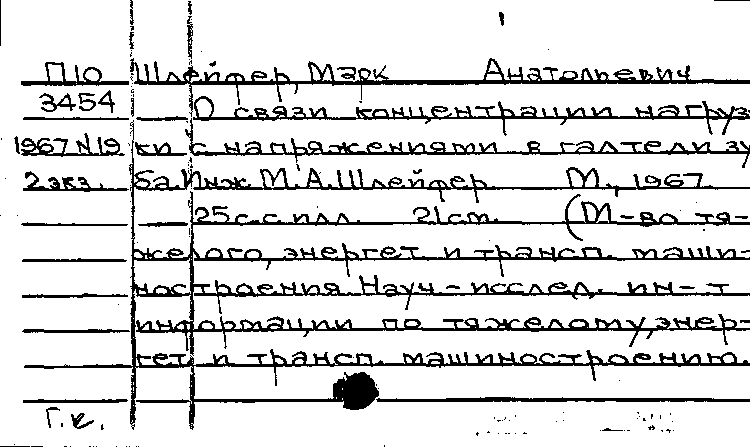 П10 Шлейфер, Марк Анатольевич
3454 О связи концентрации нагруз-
1967 N19 ки с напряжениями в галтели зу
2 экз. ба. Инж. М.А.Шлейфер. М., 1967.
25с.с илл. 21см. (М-во тя-
желого, энергет. и трансп. маши-
ностроения. Науч-исслед. ин-т
информации по тяжелому, энер-
гет. и трансп. машиностроению.
Г.к.